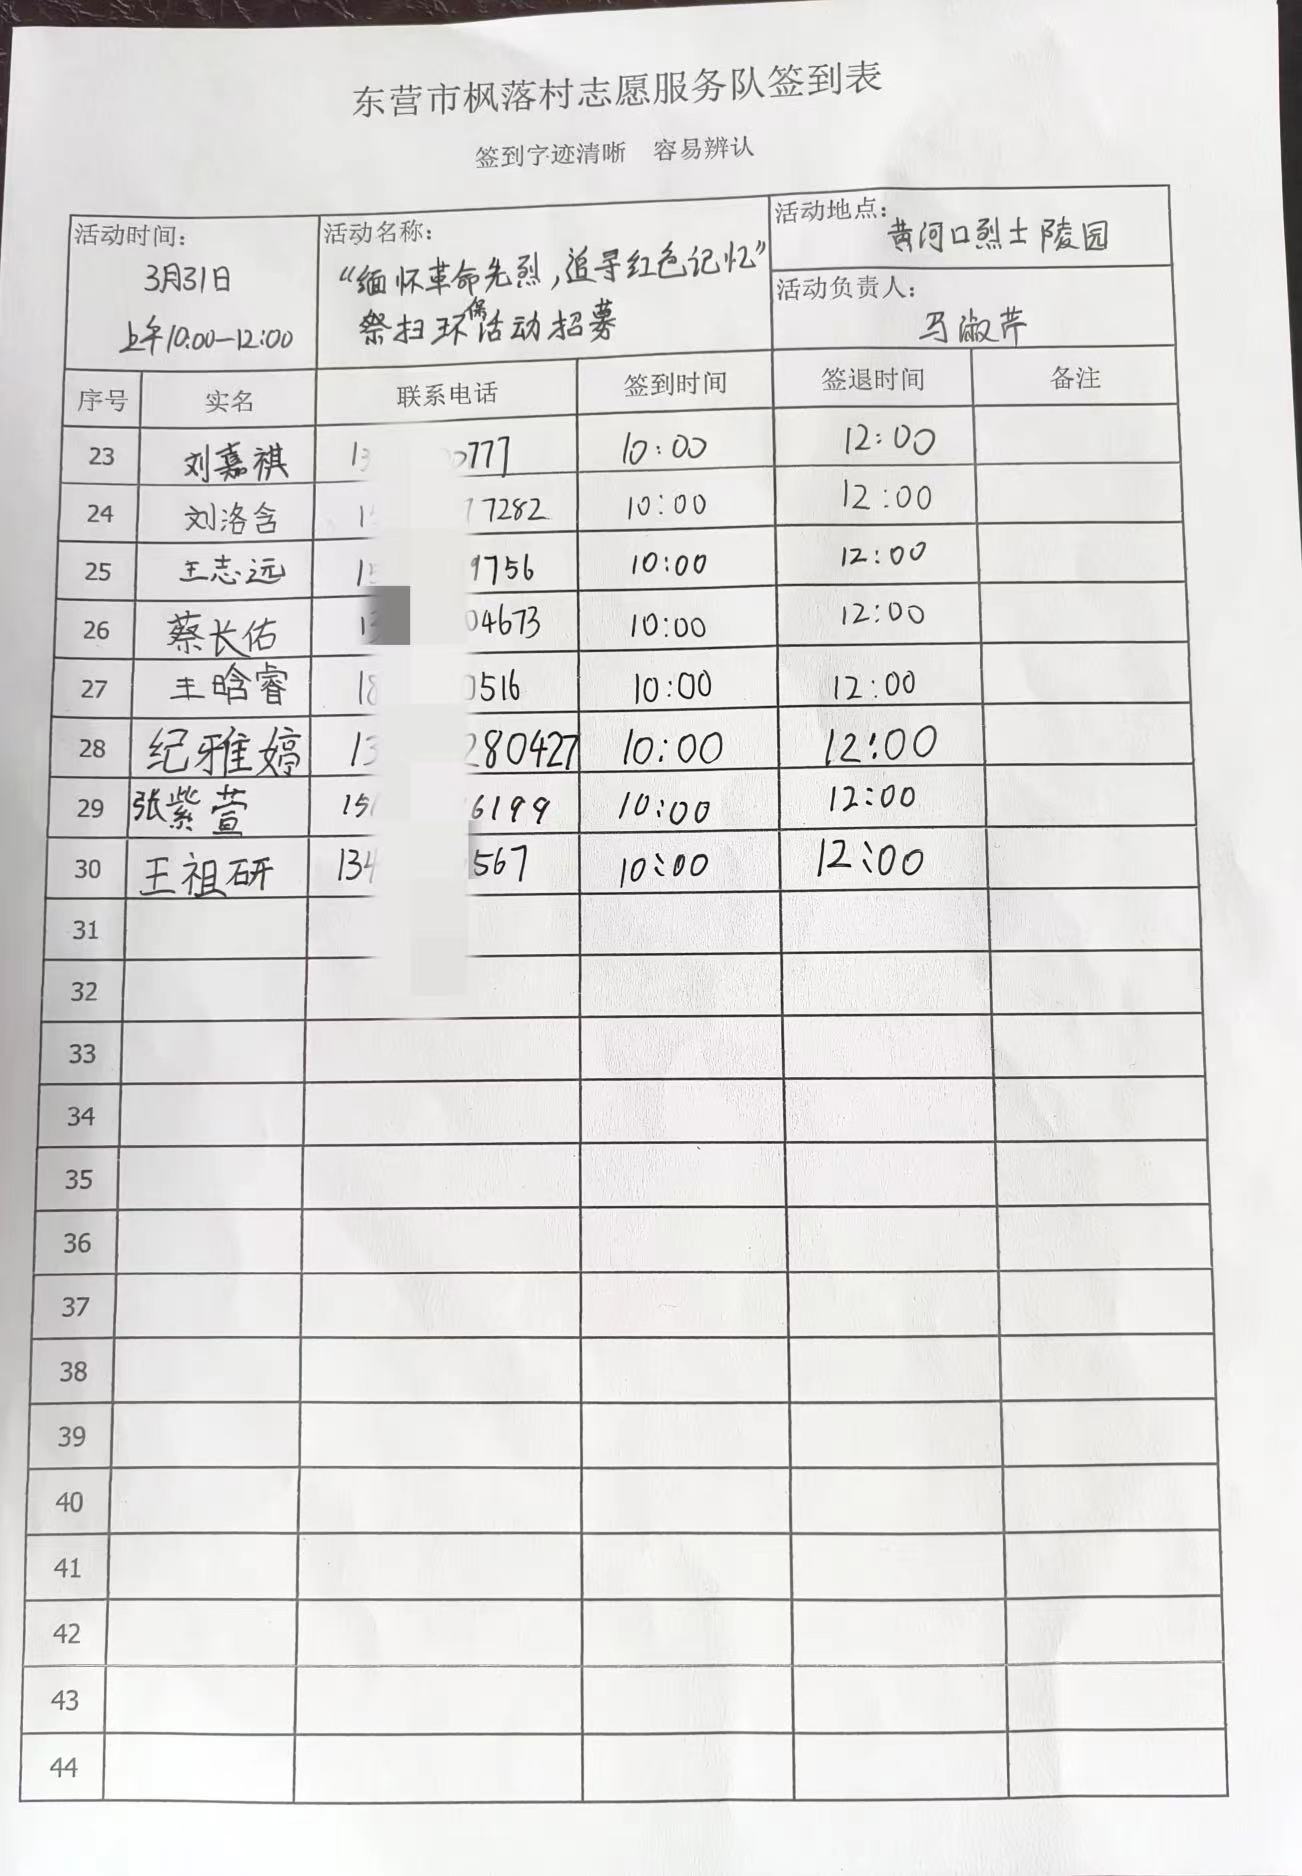 东营市枫落村志愿服务队签到表
签到字迹清晰 容易辨认
活动时间：
3月31日
上午10:00—12:00
活动名称：
“缅怀革命先烈，追寻红色记忆”
祭扫环保活动招募
活动地点：
黄河口烈士陵园
活动负责人：
马淑芹
序号 实名 联系电话 签到时间 签退时间 备注
23 刘嘉祺 13 0777 10:00 12:00
24 刘洛含 1 7282 10:00 12:00
25 王志远 15 9756 10:00 12:00
26 蔡长佑 13 04673 10:00 12:00
27 王晗睿 18 0516 10:00 12:00
28 纪雅婷 13 280427 10:00 12:00
29 张紫萱 15 6199 10:00 12:00
30 王祖研 134 567 10:00 12:00
31
32
33
34
35
36
37
38
39
40
41
42
43
44